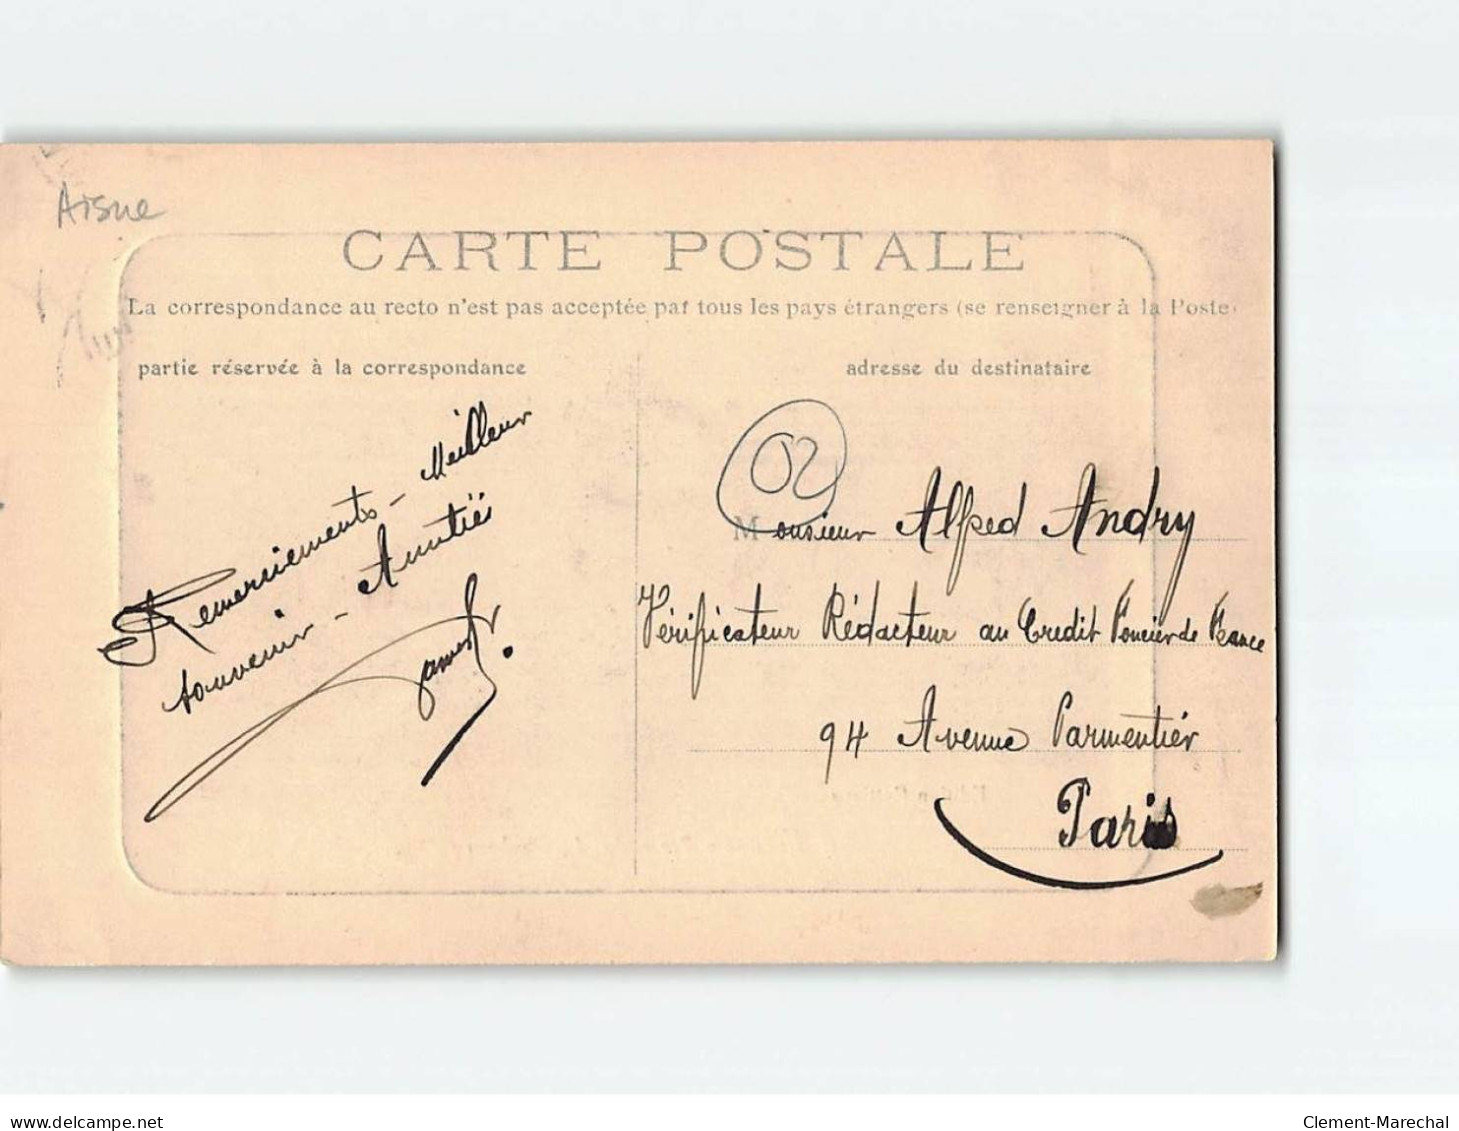 Aisne
CARTE POSTALE
La correspondance au recto n'est pas acceptée par tous les pays étrangers (se renseigner à la Poste)
partie réservée à la correspondance
adresse du destinataire
Remerciements - Meilleur
souvenir - Amitiés
02
Monsieur Alfred Andry
Vérificateur Rédacteur au Crédit Foncier de France
94 Avenue Parmentier
Paris
www.delcampe.net
Clement-Marechal